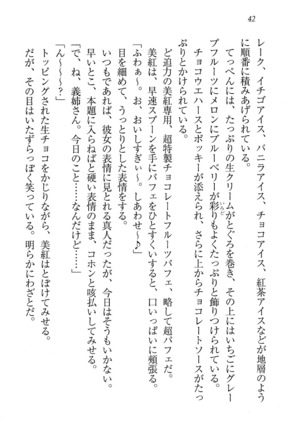 42
レーク、イチゴアイス、バニラアイス、チョコアイス、紅茶アイスなどが地層のよう
に順番に積みあげられている。
てっぺんには、たっぷりの生クリームがとぐろを巻き、その上にはいちごにグレー
プフルーツにメロンにブルーベリーが彩りもよくたっぷりと飾りつけられている。
チョコウエハースとポッキーが添えられ、さらに上からチョコレートソースがたっ
ぷりとかけられている。
ど迫力の美紅専用、超特製チョコレートフルーツパフェ、略して超パフェだ。
美紅は、早速スプーンを手にパフェをひとすくいすると、口いっぱいに頬張る。
「お、おお、おいしすぎぃ～。しあわせ～♪」
目を細めて、うっとりとした表情をする。
いつもであれば、彼女の表情に見とれる真人だったが、今日はそうもいかない。
早いとこ、本題に入らねばと硬い表情のまま、コホンと咳払いしてみせる。
「で、ね、義姉さん。今日のこと……なんだけど……」
「ん～～～？」
トッピングされた生チョコをかじりながら、美紅はとぼけてみせる。
だが、その目はいたずらっぽく笑っている。明らかにわざとだ。